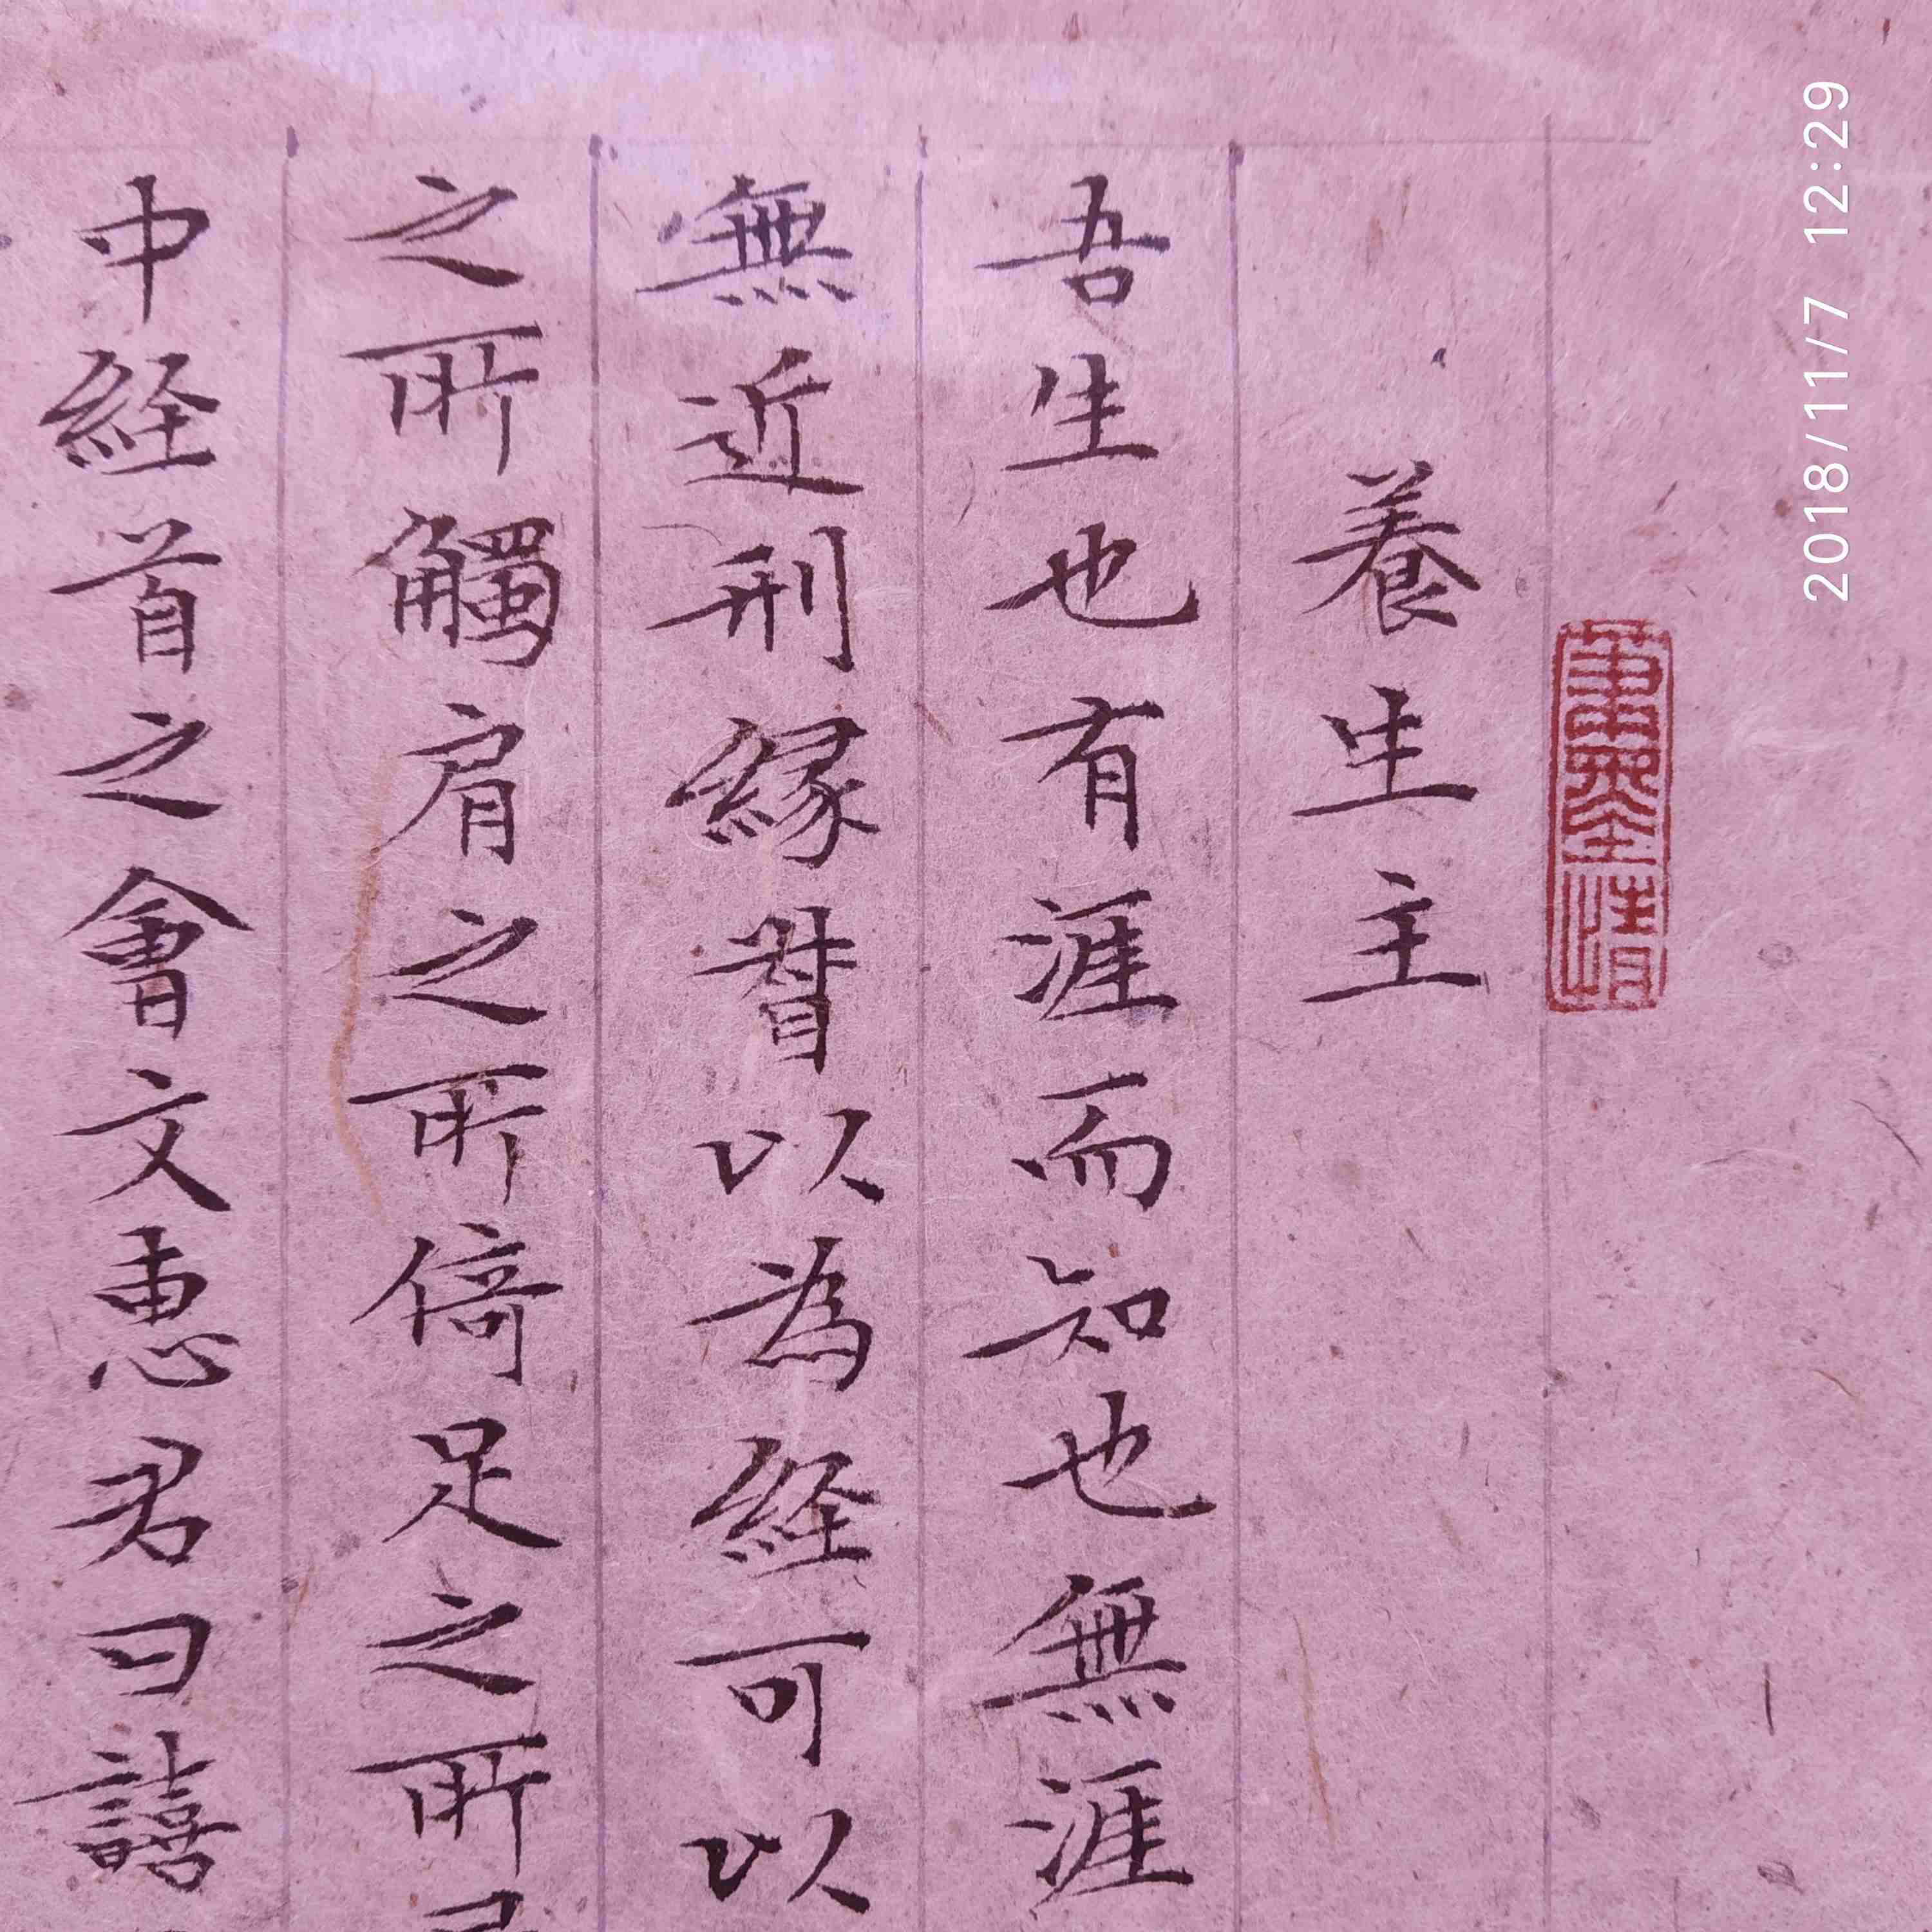 養生主
吾生也有涯而知也無涯
無近刑緣督以為経可以
之所觸肩之所倚足之所
中経首之會文惠君曰譆
2018/11/7 12:29